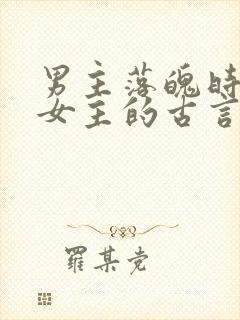 男主落魄时
女主的古言
羅某党